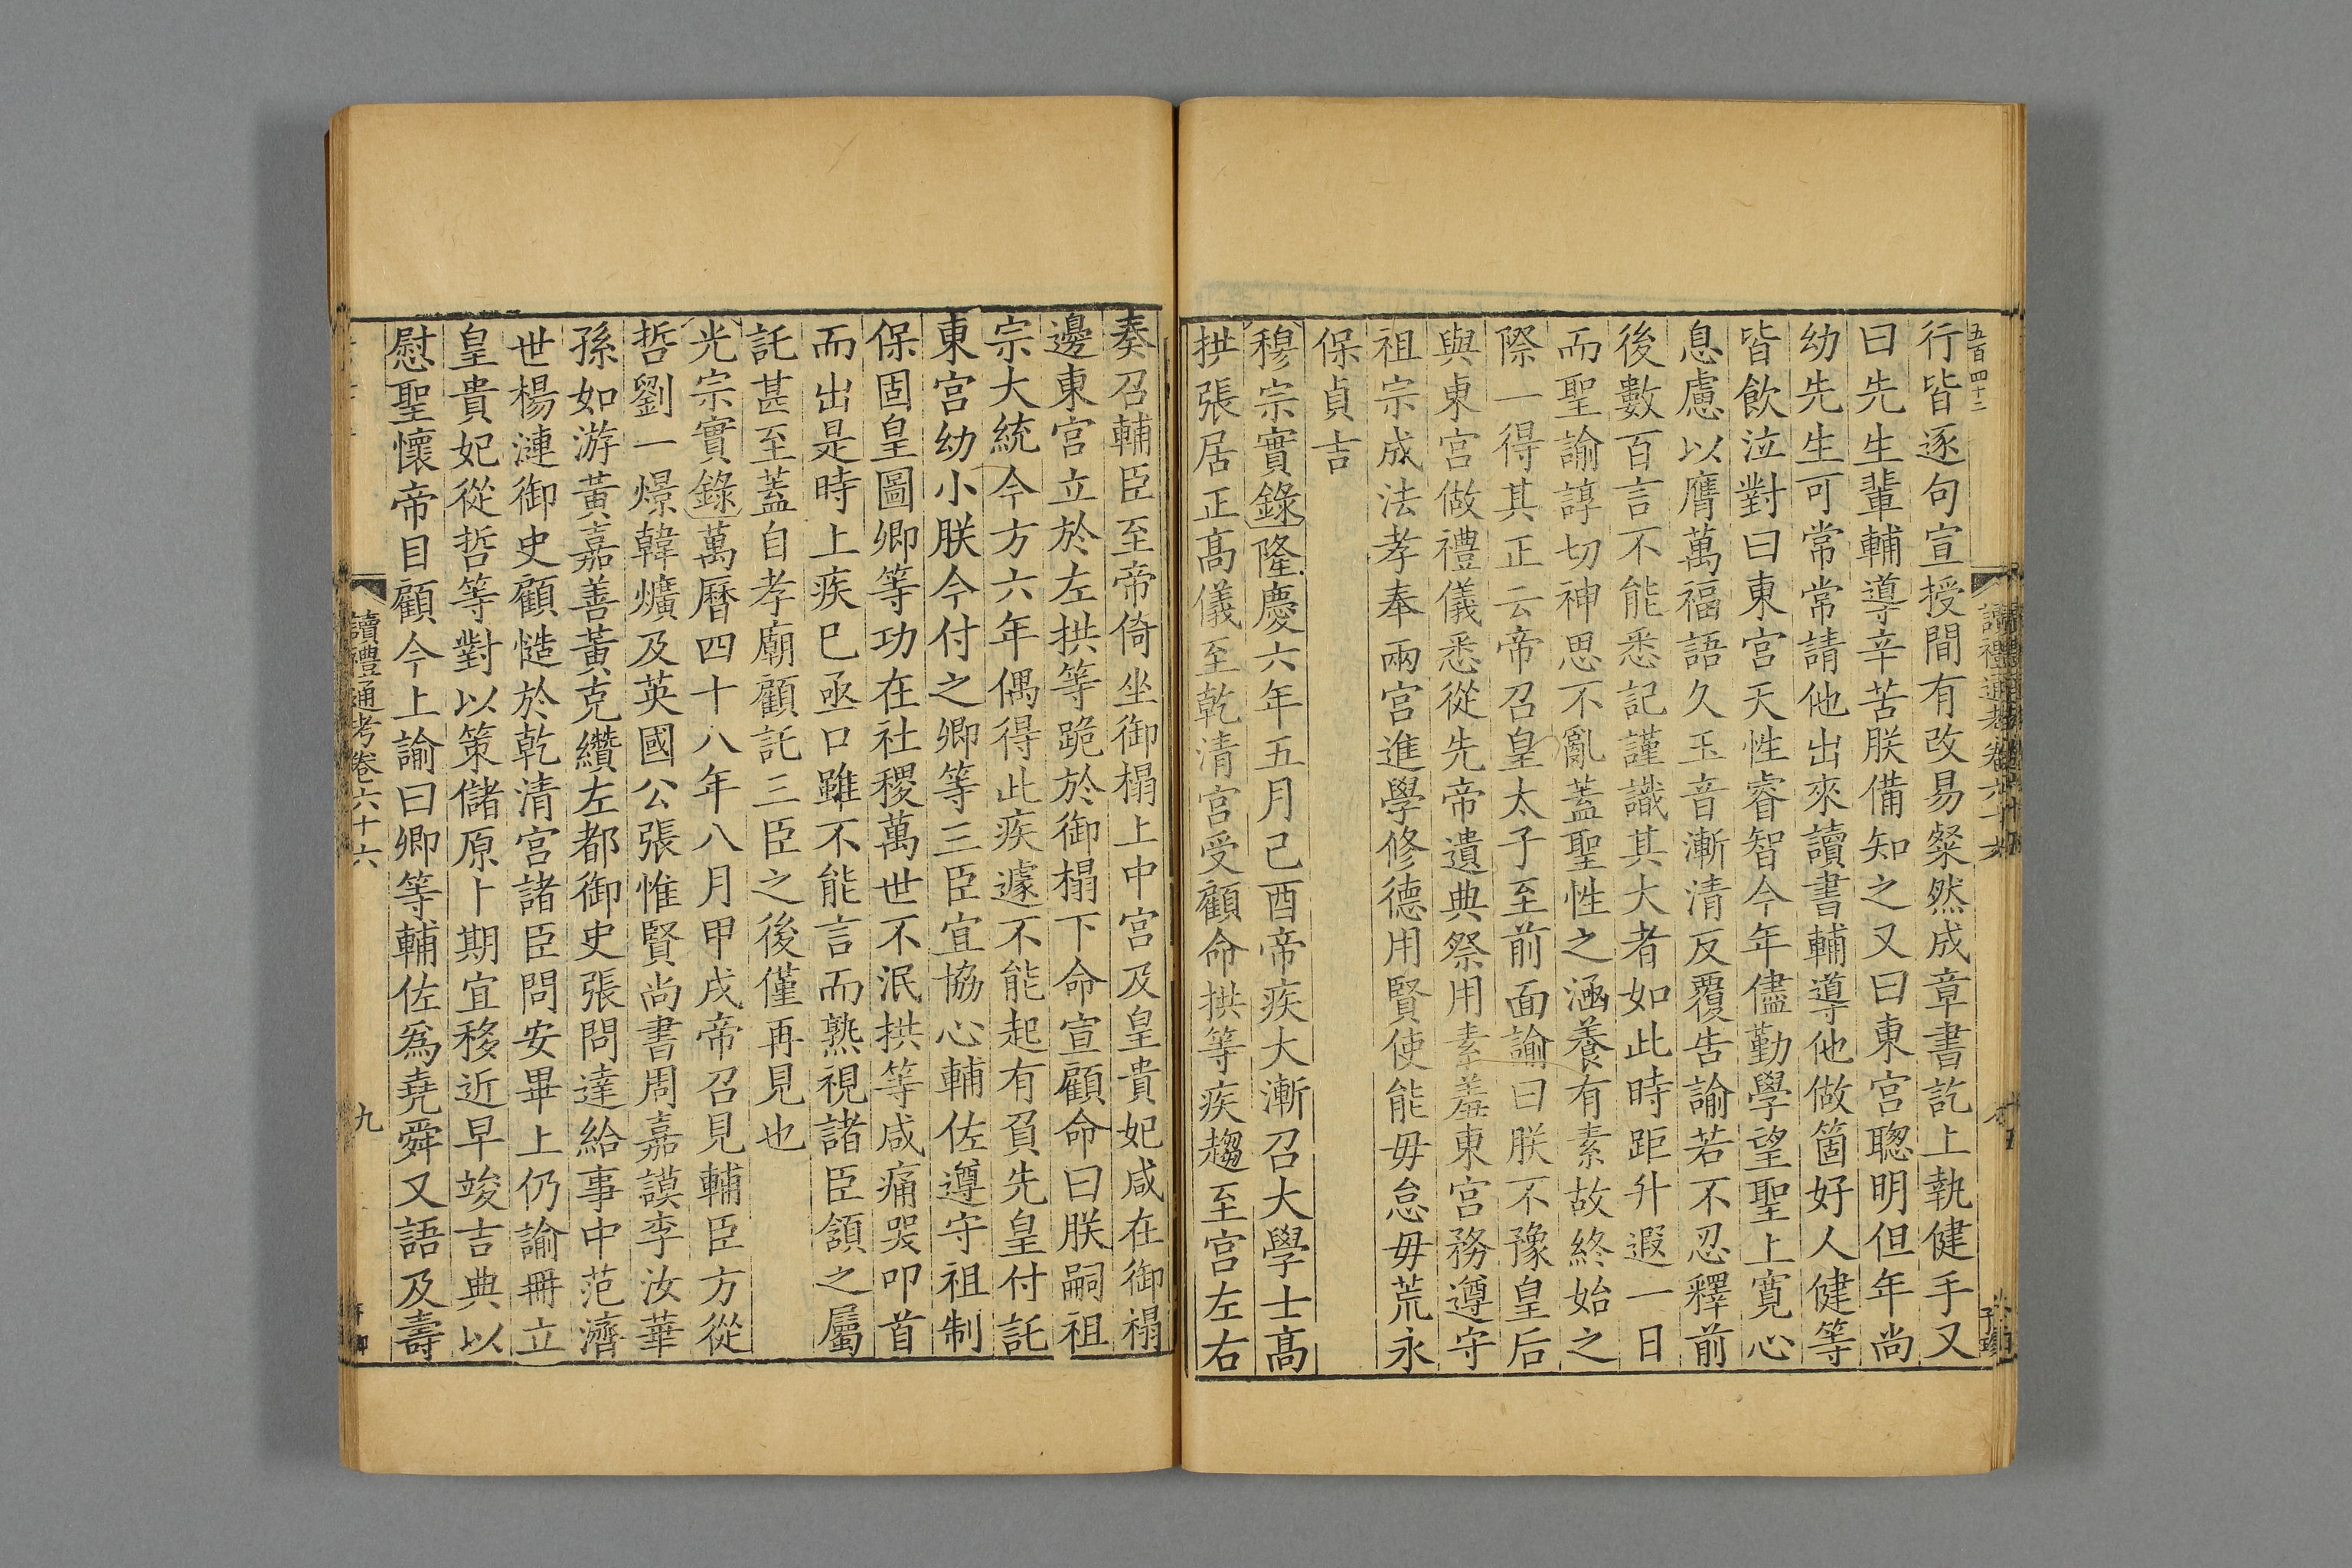 五百四十二
讀禮通考卷六十六
行皆逐句宣授間有改易粲然成章書訖上執健手又
曰先生輩輔導辛苦朕備知之又曰東宮聰明但年尚
幼先生可常常請他出來讀書輔導他做箇好人健等
皆飲泣對曰東宮天性睿智今年儘勤學望聖上寬心
息慮以膺萬福語久玉音漸清反覆告諭若不忍釋前
後數百言不能悉記謹識其大者如此時距升遐一日
而聖諭諄切神思不亂蓋聖性之涵養有素故終始之
際一得其正云帝召皇太子至前面諭曰朕不豫皇后
與東宮做禮儀悉從先帝遺典祭用素羞東宮務遵守
祖宗成法孝奉兩宮進學修德用賢使能毋怠毋荒永
保貞吉
穆宗實錄隆慶六年五月己酉帝疾大漸召大學士高
拱張居正高儀至乾清宮受顧命拱等疾趨至宮左右
奏召輔臣至帝倚坐御榻上中宮及皇貴妃咸在御榻
邊東宮立於左拱等跪於御榻下命宣顧命曰朕嗣祖
宗大統今方六年偶得此疾遽不能起有負先皇付託
東宮幼小朕今付之卿等三臣宜協心輔佐遵守祖制
保固皇圖卿等功在社稷萬世不泯拱等咸痛哭叩首
而出是時上疾已亟口雖不能言而熟視諸臣頷之屬
託甚至蓋自孝廟顧託三臣之後僅再見也
光宗實錄萬曆四十八年八月甲戌帝召見輔臣方從
哲劉一燝韓爌及英國公張惟賢尚書周嘉謨李汝華
孫如游黃嘉善黃克纘左都御史張問達給事中范濟
世楊漣御史顧慥於乾清宮諸臣問安畢上仍諭冊立
皇貴妃從哲等對以策儲原卜期宜移近早竣吉典以
慰聖懷帝目顧今上諭曰卿等輔佐爲堯舜又語及壽
讀禮通考卷六十六
九